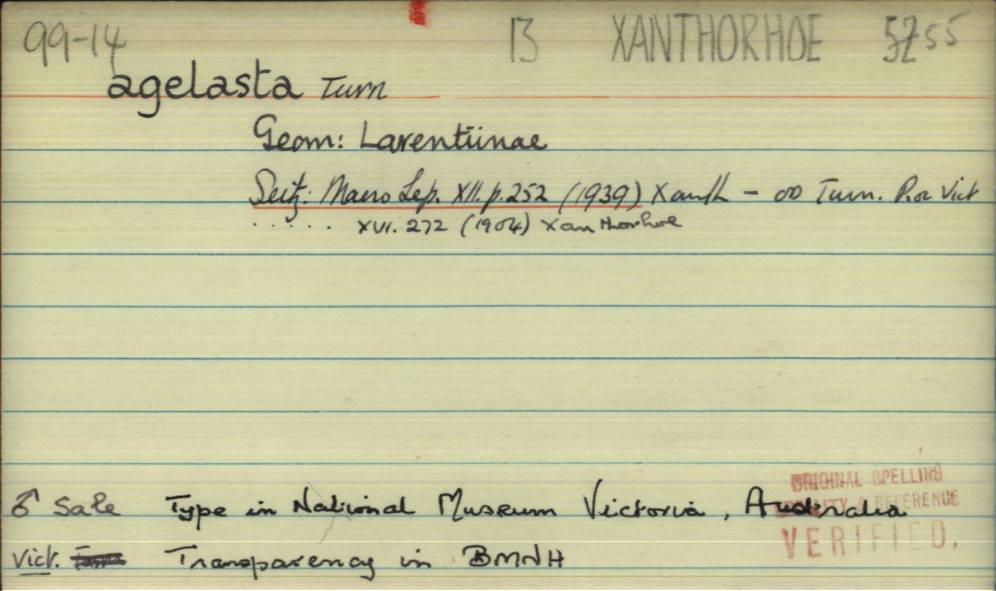 99-14 13 XANTHORHOE 5255
agelasta Turn
Geom: Larentiinae
Seitz: Macro Lep. XII. p. 252 (1939) Xanth - ∞ Turn. P.oc Vict
. . . . . . XVI. 272 (1904) Xanthorhoe
♂ Sale Type in National Museum Victoria, Australia
Vict. Transparency in BMNH
ORIGINAL SPELLING
& REFERENCE
VERIFIED.